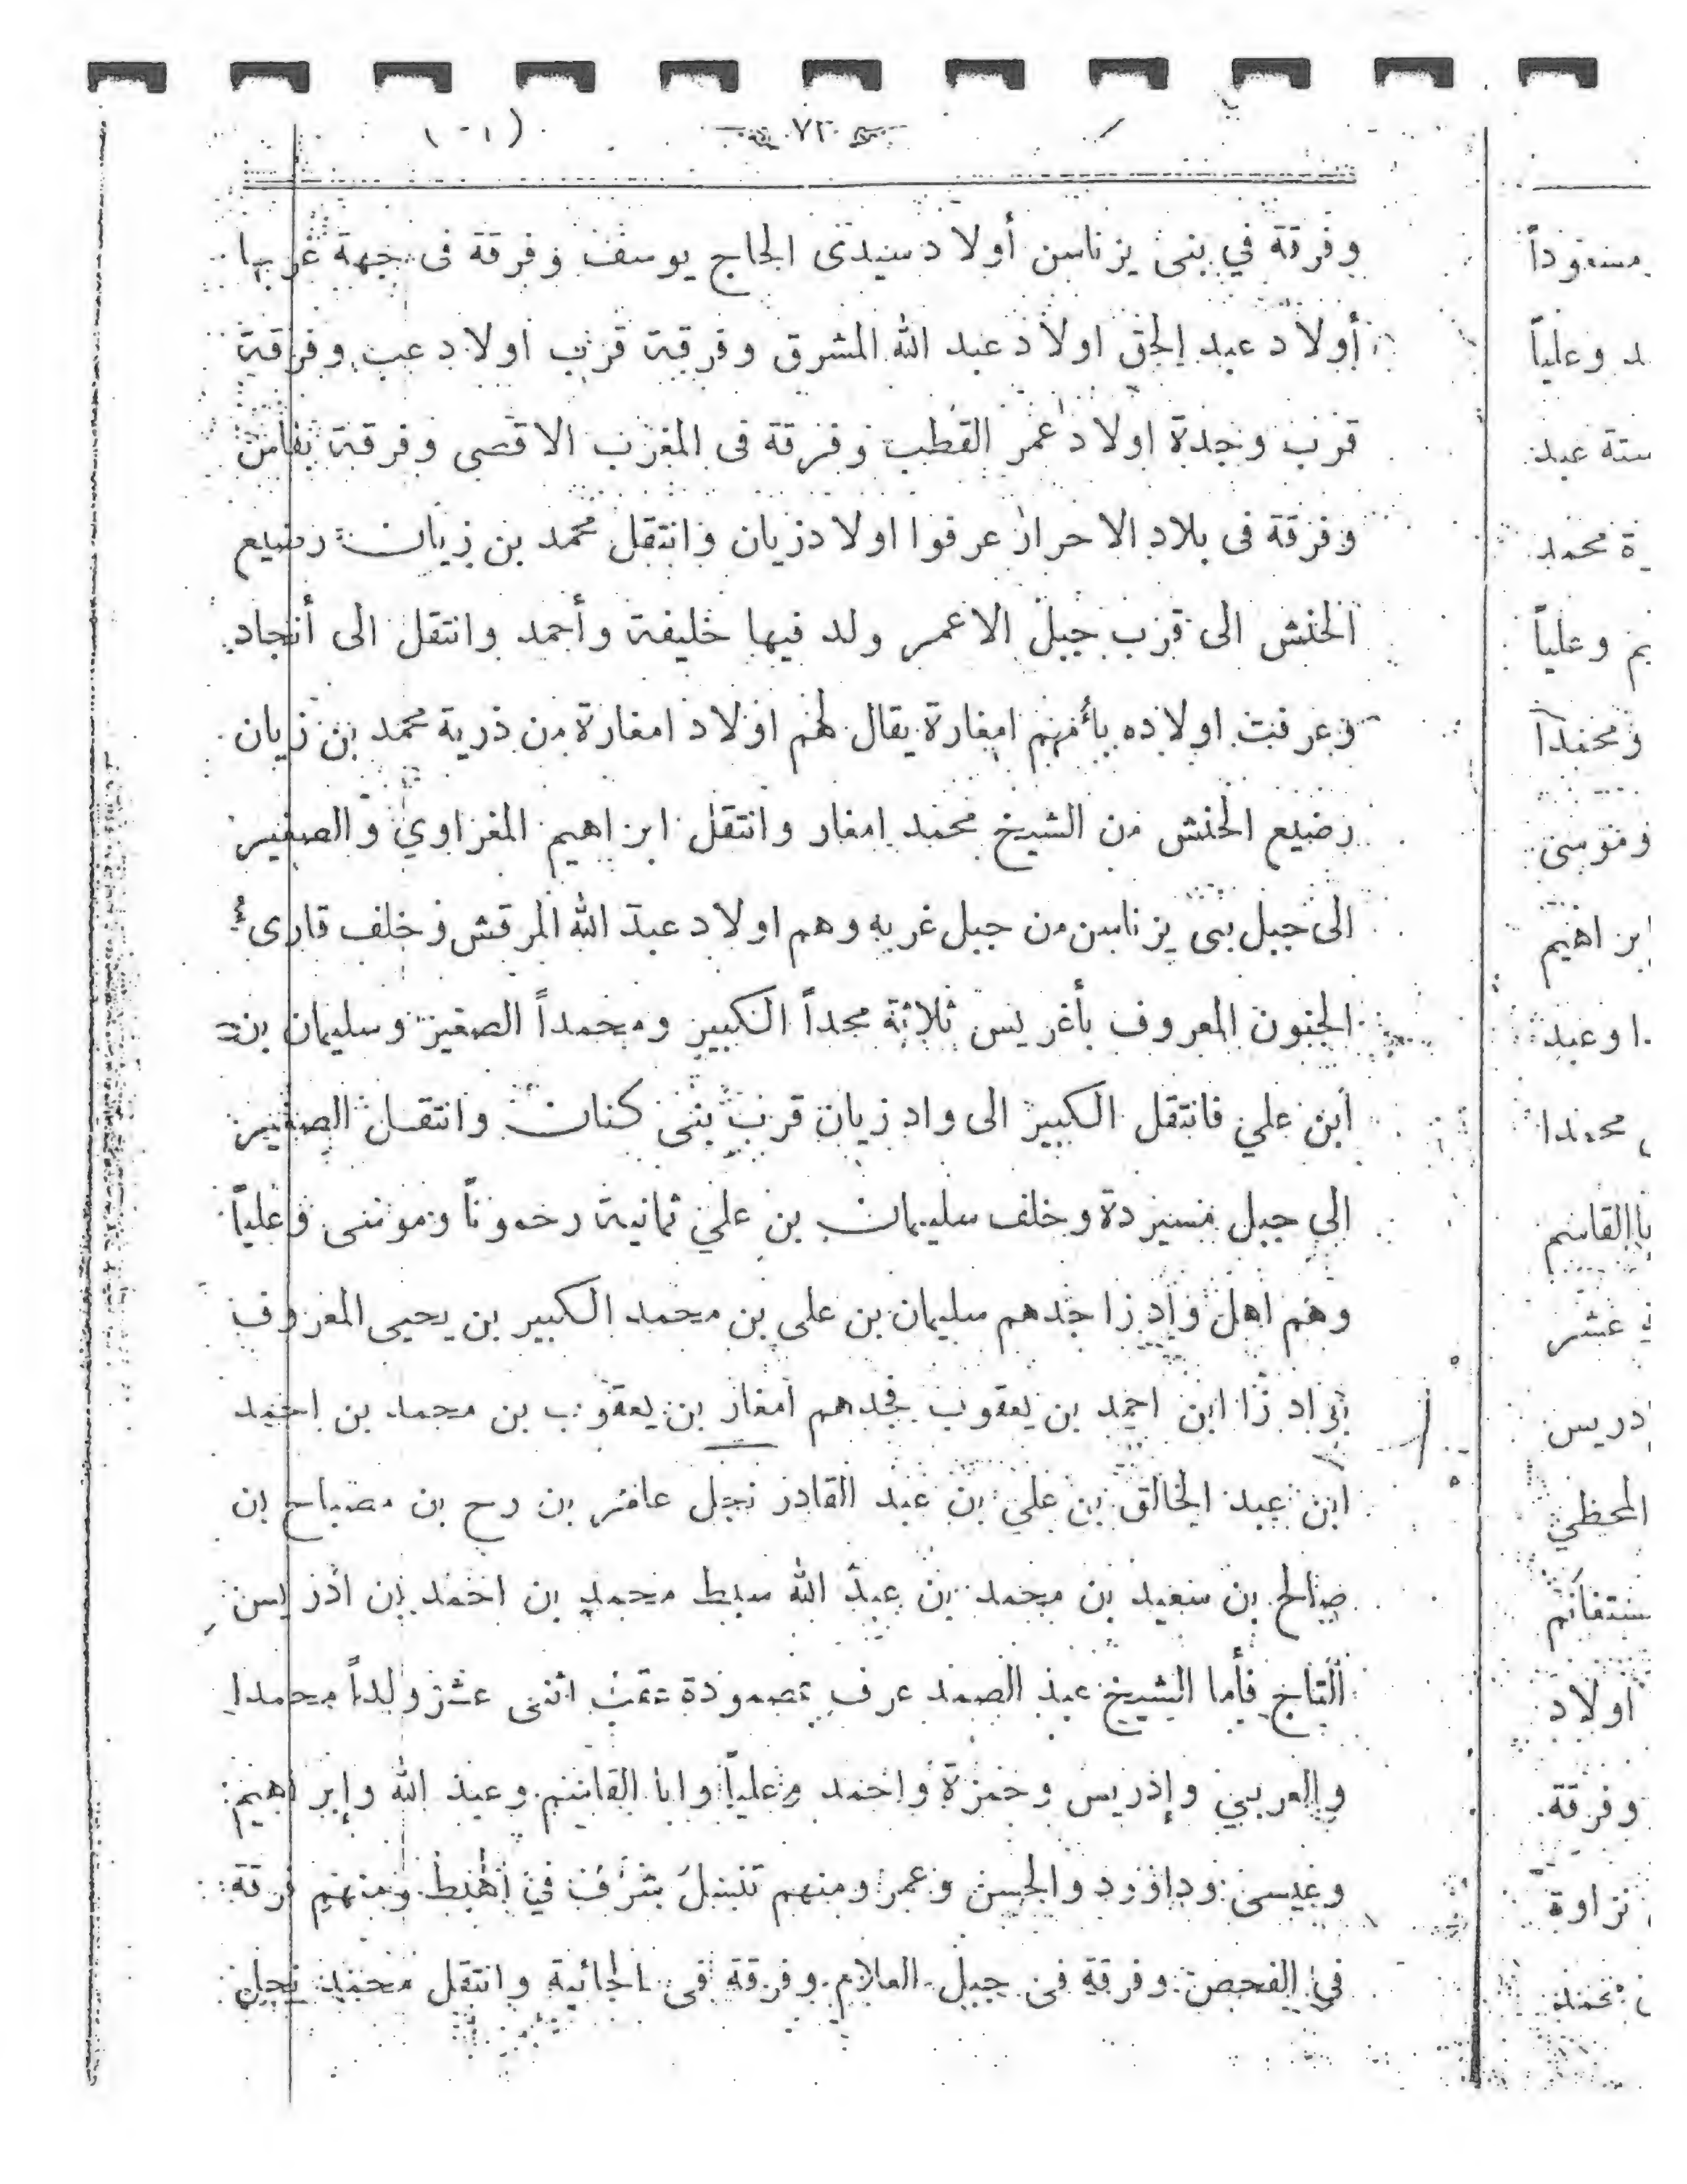 ٧٢
وفرقة في بنى يزناسن أولاد سيدى الحاج يوسف وفرقة فى جهة غربها
أولاد عبد الحق اولاد عبد الله المشرق وفرقة قرب اولاد عب وفرقة
قرب وجدة اولاد عمر القطب وفرقة فى المغرب الاقصى وفرقة بفاس
وفرقة فى بلاد الاحرار عرفوا اولاد زيان وانتقل محمد بن زيان رضيع
الحنش الى قرب جبل الاعمر ولد فيها خليفة وأحمد وانتقل الى أنجاد
وعرفت اولاده بأمهم امغارة يقال لهم اولاد امغارة من ذرية محمد بن زيان
رضيع الحنش من الشيخ محمد امغار وانتقل ابراهيم المغراوي والصغير
الى جبل بى يزناسن من جبل غربه وهم اولاد عبد الله المرقش وخلف قارىء
الجنون المعروف بأغريس ثلاثة محداً الكبير ومحمداً الصغير وسليمان بن
ابن علي فانتقل الكبير الى واد زيان قرب بنى كنان وانتقل الصغير
الى جبل مسيردة وخلف سليمان بن علي ثمانية رحموناً وموسى وعلياً
وهم اهل واد زا جدهم سليمان بن على بن محمد الكبير بن يحيى المعروف
بواد زا ابن احمد بن يعقوب فجدهم امغار بن يعقوب بن محمد بن احمد
ابن عبد الخالق بن علي بن عبد القادر نجل عامر بن رح بن مصباح بن
صالح بن سعيد بن محمد بن عبد الله سبط محمد بن احمد بن ادريس
التاج فأما الشيخ عبد الصمد عرف بمصمودة عقب اثنى عشر ولداً محمدا
والعربي وإدريس وحمزة واحمد وعلياً وابا القاسم وعبد الله وإبراهيم
وعيسى وداوود والحسن وعمر ومنهم تنسل بشرف في اهبط ومنهم فرقة
في الفحص وفرقة فى جبل العلام وفرقة فى الجائية وانتقل محمد نجل
مسعوداً
د وعلياً
ستة عبد
رة محمد
يم وعلياً
ومحمداً
وموسى
ابراهيم
ا وعبد
محمدا
با القاسم
ي عشر
ادريس
المحظي
مستغانم
اولاد
وفرقة
نزاوة
محمد